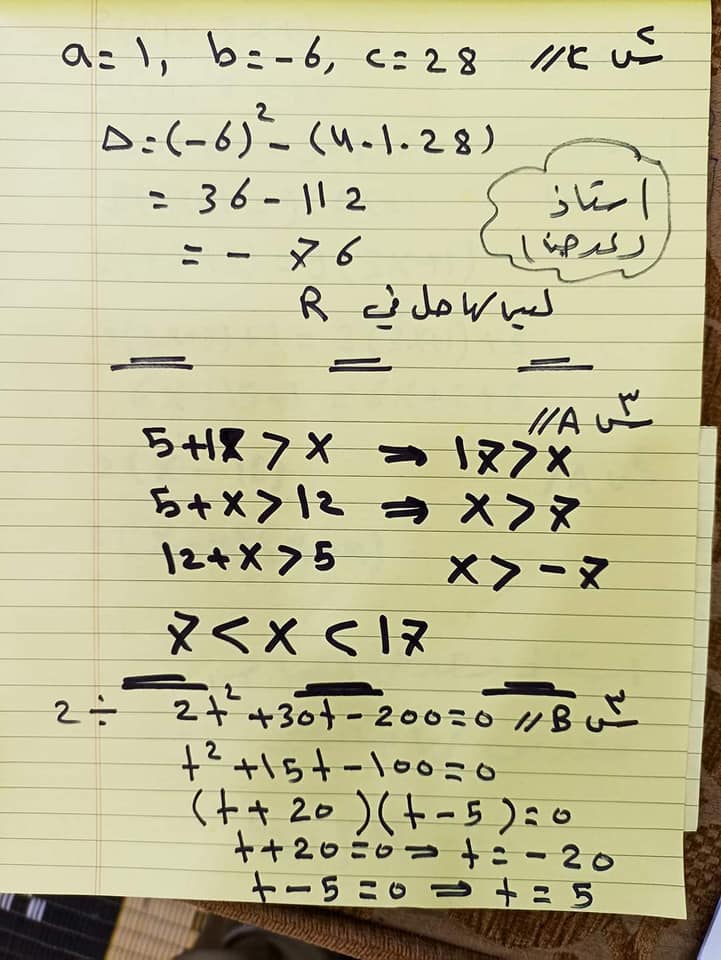 a=1, b=-6, c=28 // C س٢
Δ=(-6)²-(4.1.28)
= 36-112
= - 76
استاذ
رعد حنا
ليس لها حل في R
س٣ A //
5+12>x ⇒ 17>x
5+x>12 ⇒ x>7
12+x>5 x>-7
7<x<17
2÷ 2t²+30t-200=0 // B س٣
t²+15t-100=0
(t+20)(t-5)=0
t+20=0 ⇒ t=-20
t-5=0 ⇒ t=5